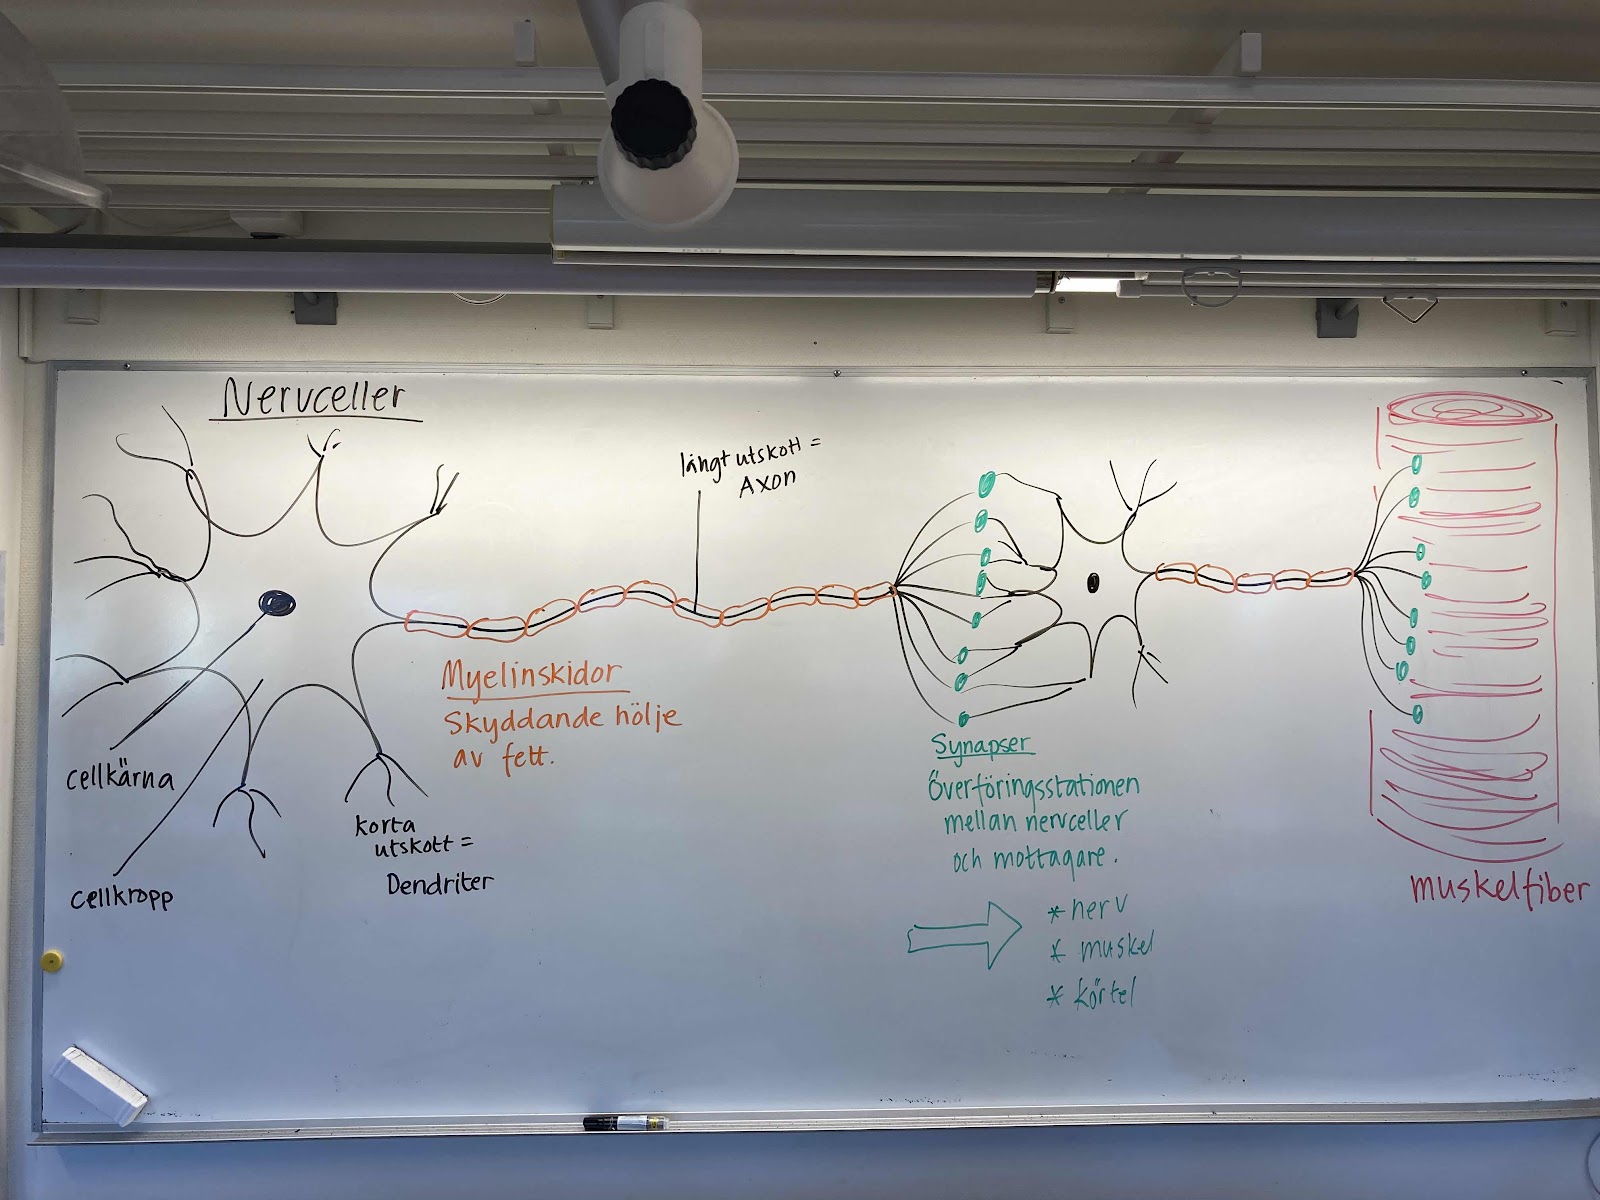 Nervceller
långt utskott =
Axon
Myelinskidor
Skyddande hölje
av fett.
cellkärna
cellkropp
korta
utskott =
Dendriter
Synapser
Överföringsstationen
mellan nervceller
och mottagare.
* nerv
* muskel
* körtel
muskelfiber